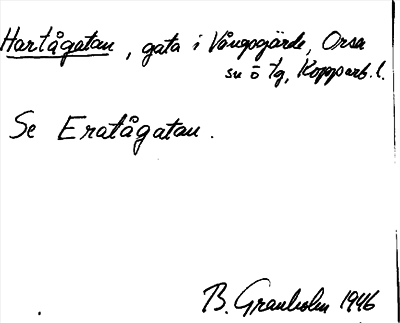 Hartågatan, gata i Vångsgärde, Orsa
sn o tg, Kopparb. l.
Se Eratågatan.
B. Granholm 1946